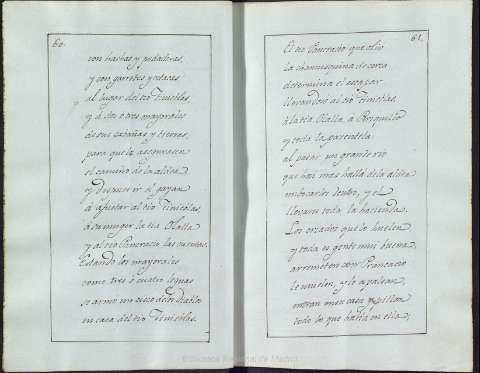 60.
con hachas y podaderas,
y con garrotes y estacas
al lugar del tio Tinieblas,
y à dos o tres mayorales
de sus cabañas y tierras,
para que la asegurasen
el camino de la aldea
y
à ajustar al tio Tinieblas,
à su muger la tia Olalla
y al tio Pancracio las cuentas.
Estando los mayorales
como tres o cuatro leguas
se armó un cisco de los Diablos
en casa del tio Tinieblas.
61.
El tio Pancracio que olió
la chamusquina de cerca
determina el escapar
llevandose al tio Tinieblas,
à la tia Olalla, à Periquillo
y toda la parentela
al pasar un grande rio
que hai mas hallá de la aldea
embocarles dentro, y el
llevarse toda la hacienda.
Los criados que lo huelen
y toda es gente mui buena,
arremeten con Pancracio
le muelen, y le apalean,
entran en su casa y pillan
todo lo que habia en ella,
Biblioteca Regional de Madrid